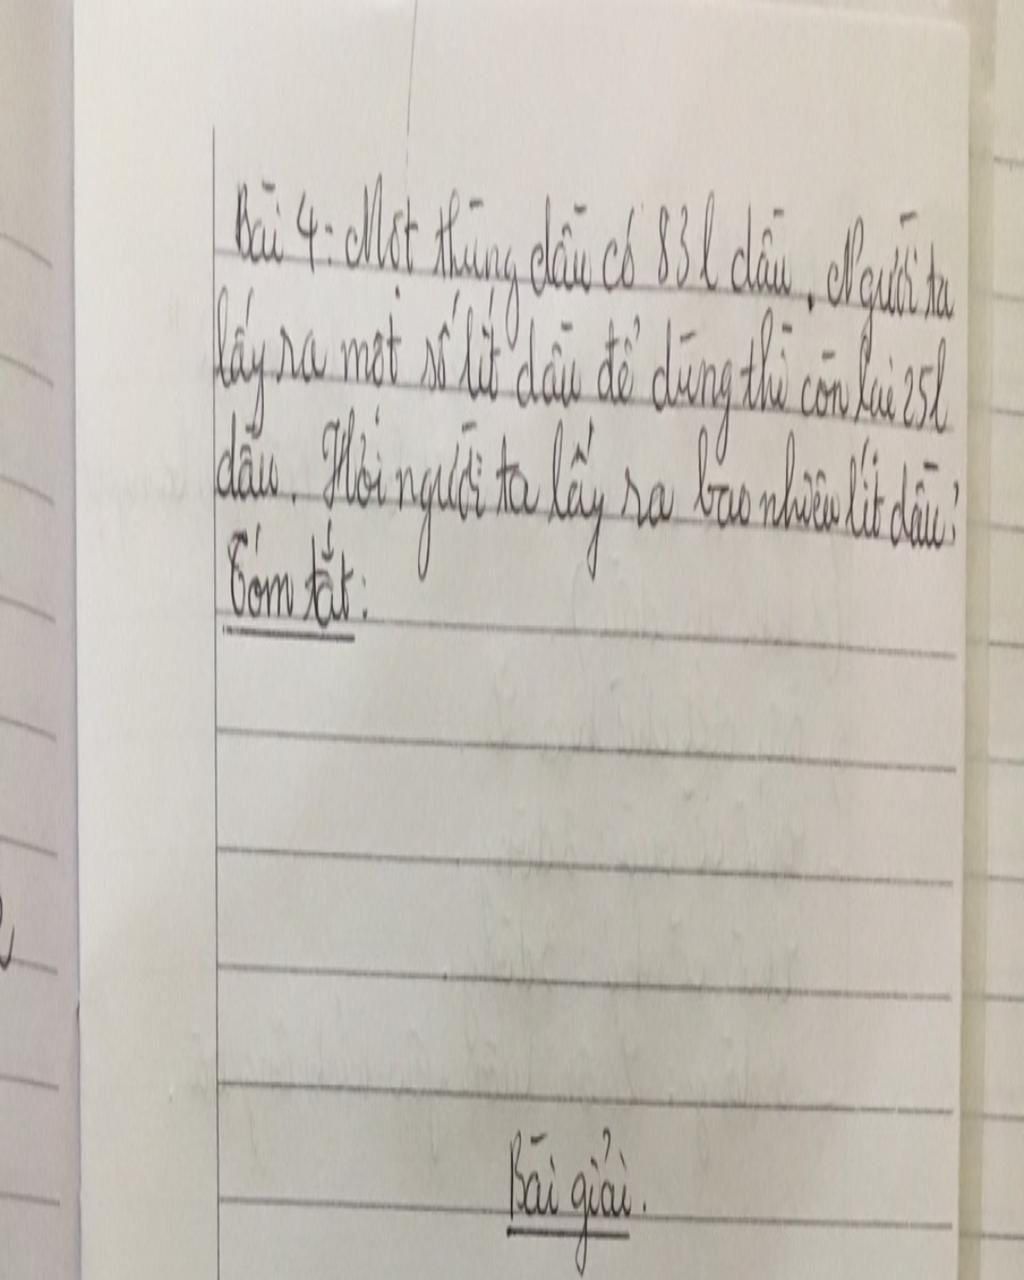 Bài 4: Một thùng dầu có 83l dầu. Người ta
lấy ra một số lít dầu để dùng thì còn lại 25l
dầu. Hỏi người ta lấy ra bao nhiêu lít dầu?
Tóm tắt:
Bài giải.